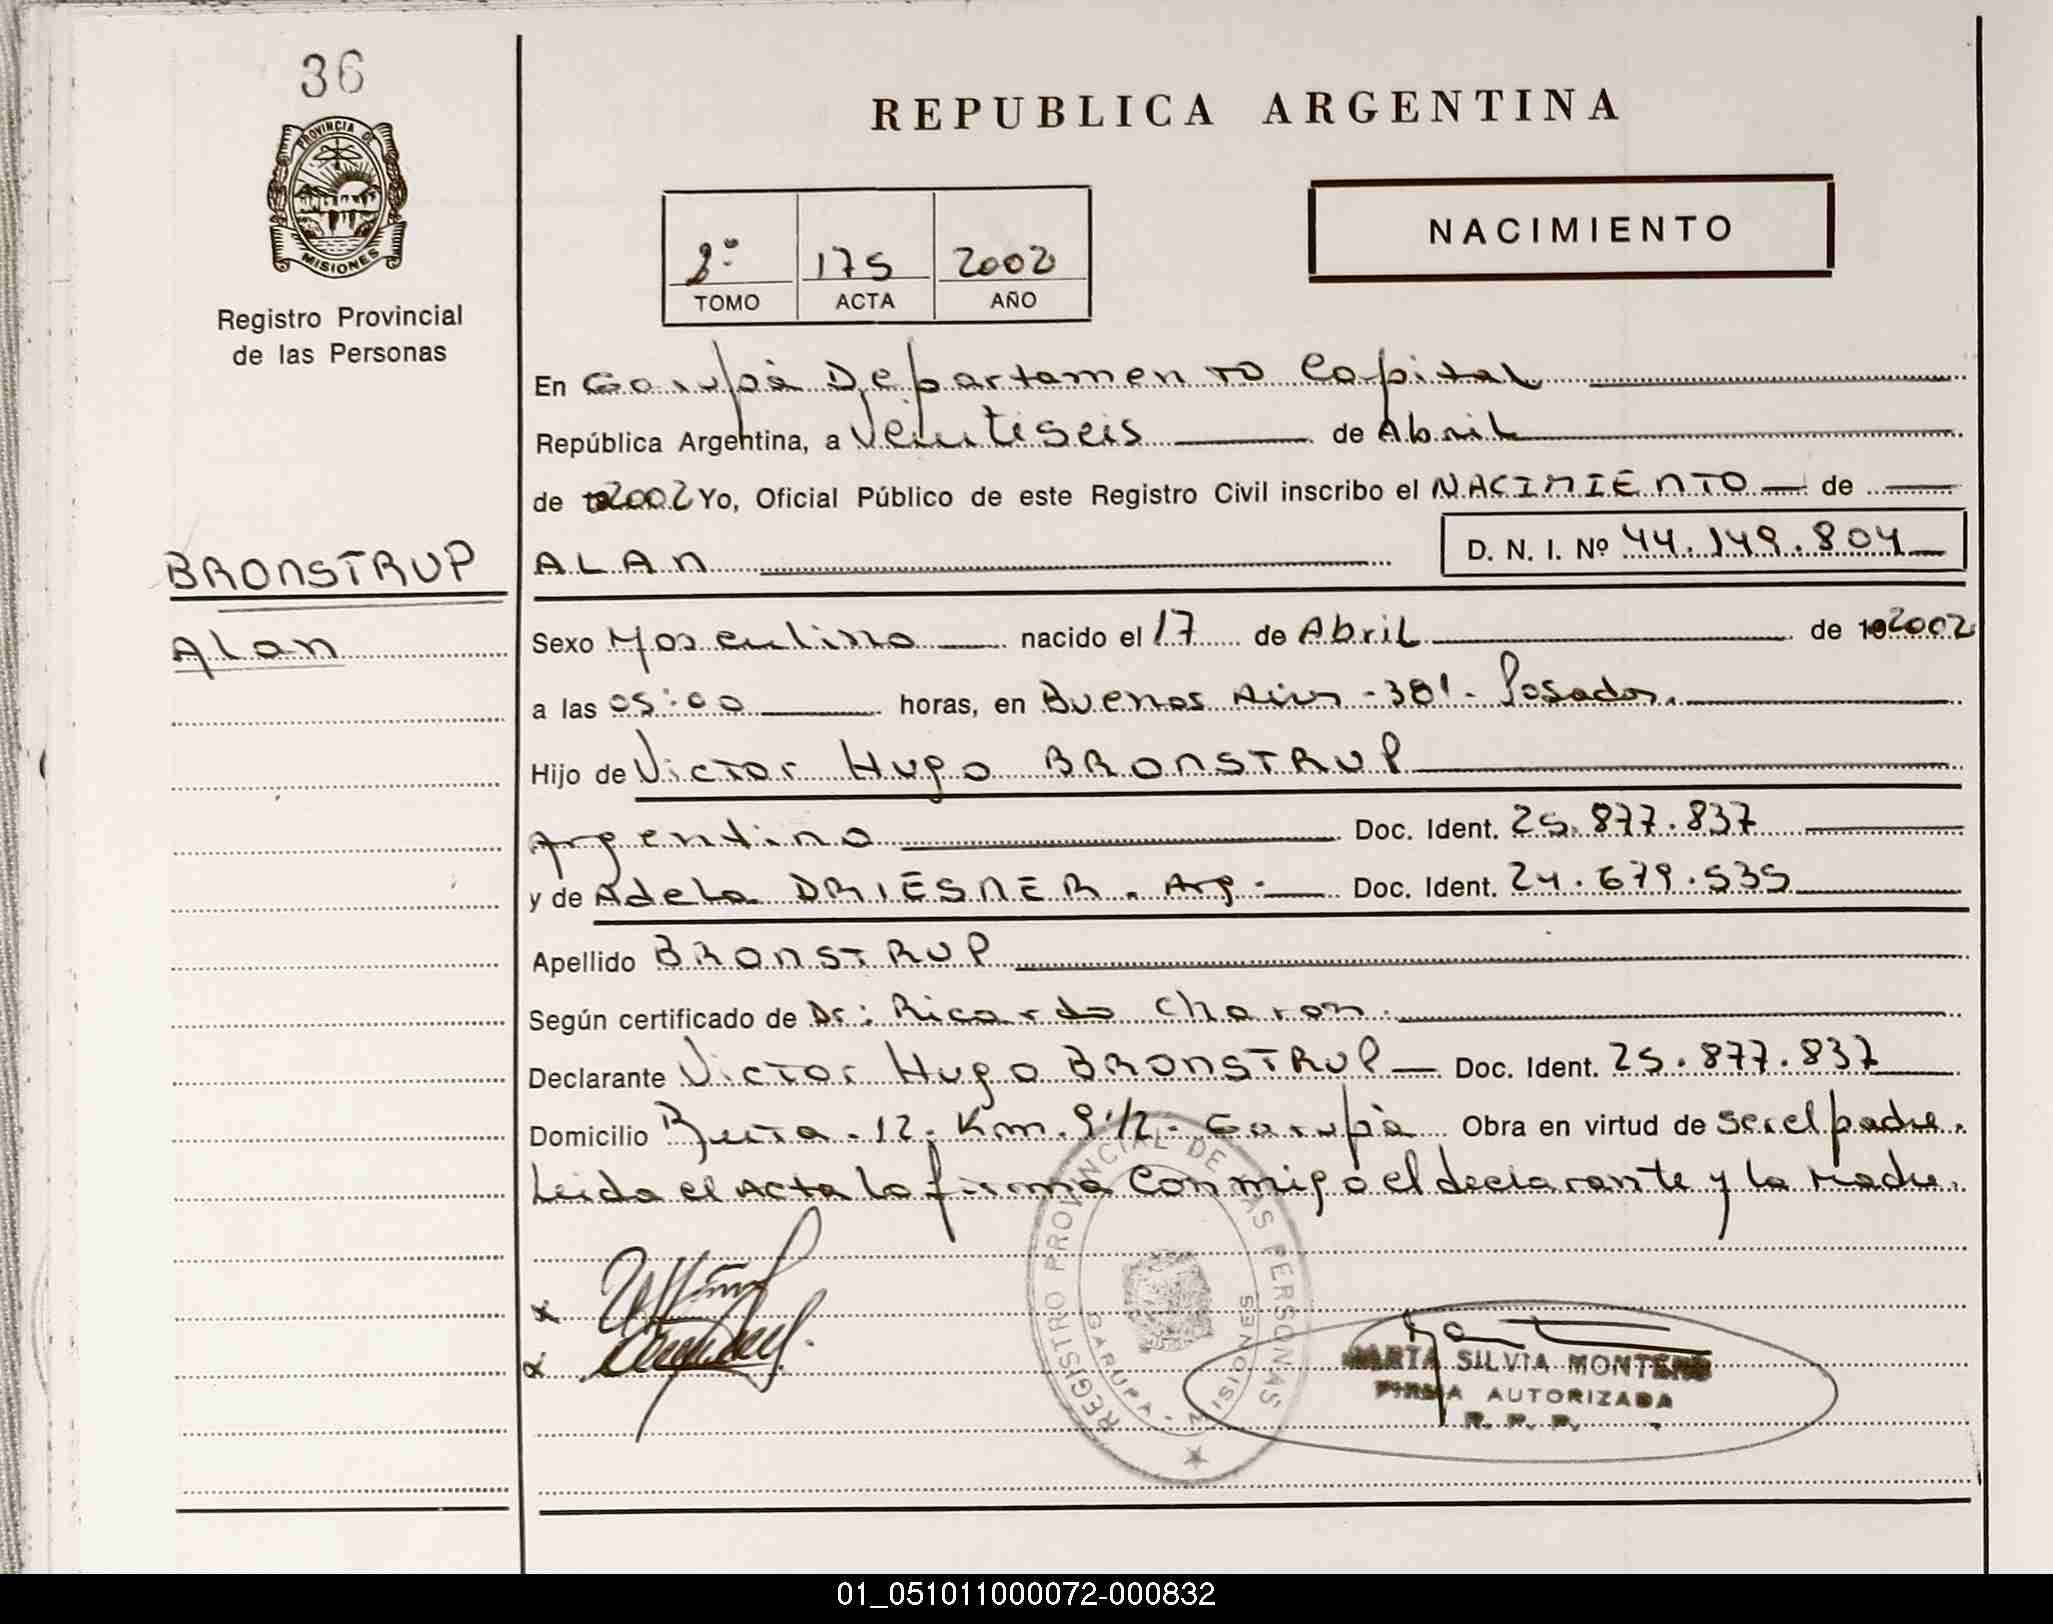 36
PROVINCIA DE
MISIONES
Registro Provincial
de las Personas
BRONSTRUP
Alan
REPUBLICA ARGENTINA
NACIMIENTO
2º 175 2002
TOMO ACTA AÑO
En Garupà Departamento Capital
República Argentina, a Veintiseis de Abril
de 2002 Yo, Oficial Público de este Registro Civil inscribo el NACIMIENTO de
ALAN D. N. I. Nº 44.149.804
Sexo Masculino nacido el 17 de Abril de 192002
a las 05:00 horas, en Buenos Aires - 381 - Posadas.
Hijo de Victor Hugo BRONSTRUP
Argentino Doc. Ident. 25.877.837
y de Adela DRIESNER. Arg.- Doc. Ident. 24.679.535
Apellido BRONSTRUP
Según certificado de Dr: Ricardo Charon.
Declarante Victor Hugo BRONSTRUP Doc. Ident. 25.877.837
Domicilio Ruta. 12. Km. 9 1/2 - Garupà Obra en virtud de ser el padre.
Leida el Acta la firma conmigo el declarante y la Madre.
REGISTRO PROVINCIAL DE LAS PERSONAS
GARUPA - MISIONES
x
x
MARTA SILVIA MONTERO
FIRMA AUTORIZADA
R. P. P.
01_051011000072-000832